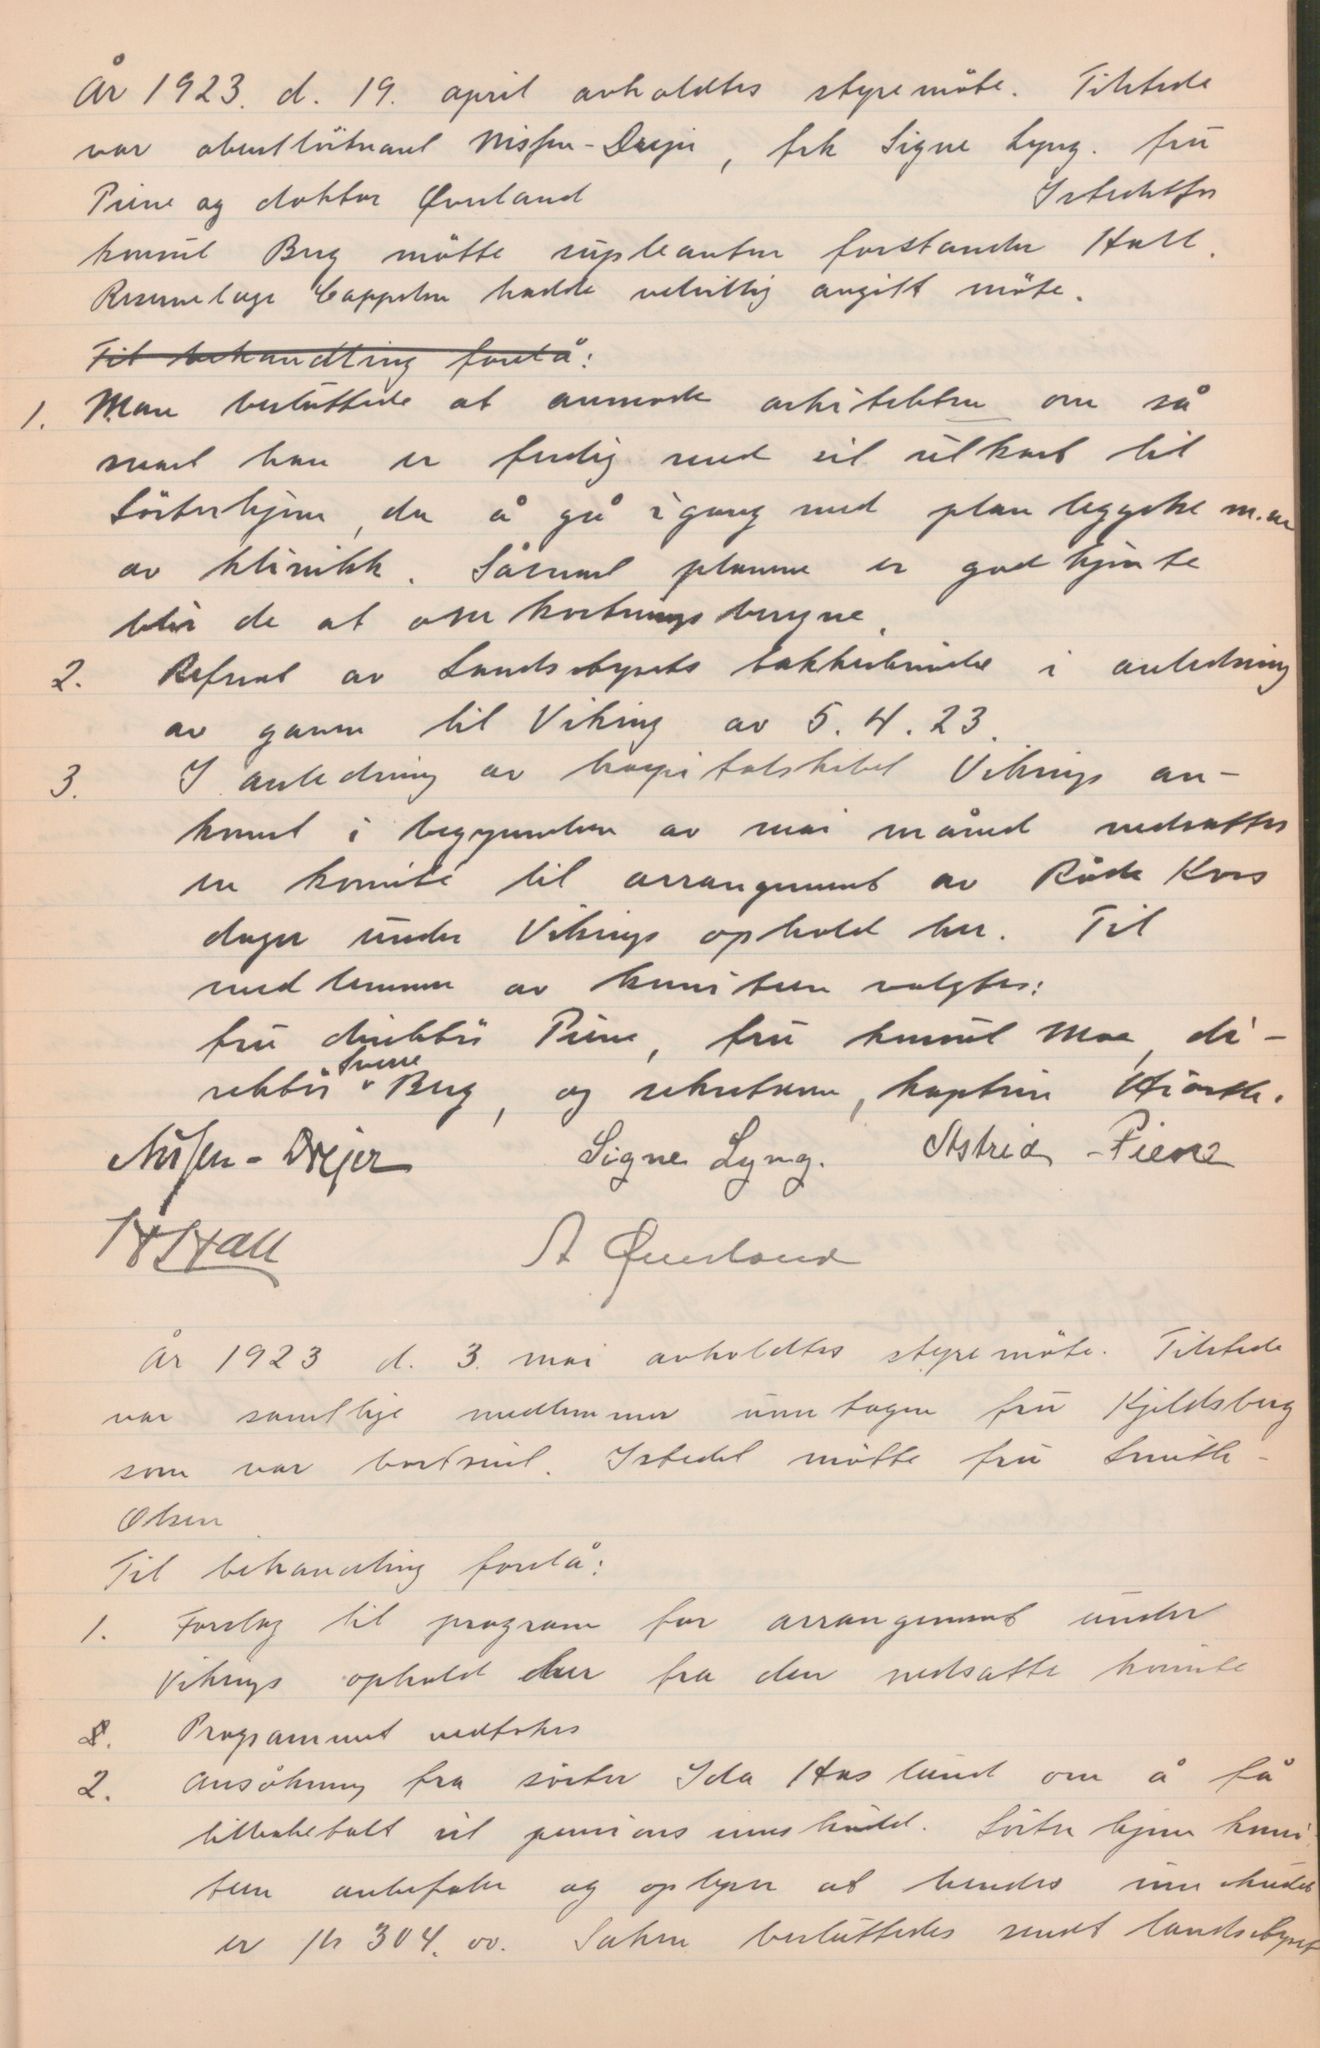 År 1923. d. 19. april avholdtes styremöte. Tilstede
var oberstlöitnant Nissen-Drejer, frk Signe Lyng. fru
Piene og doktor Øverland Istedetfor
konsul Berg mötte supleanten forstander Hall.
Reservelæge Cappelen hadde uvitterlig möte.
Til behandling forelå:
1. Man besluttede at anmode arkitekten om så
snart han er ferdig med sit utkast til
Sösterhjem, da å gå igang med planleggelse m.m
av klinikk. Såsnart planene er godkjente
blir de at omkostningsberegne.
2. Referat av Landsstyrets takkeskrivelse i anledning
av gaven til Viking av 5.4.23.
3. I anledning av hospitalskibet Vikings an-
komst i begynnelsen av mai måned nedsattes
en komité til arrangement av Röde Kors
dager under Vikings ophold her. Til
medlemmer av komiteen valgtes:
fru direktör Piene, fru konsul Moe, di-
rektör Sverre Berg, og sekretæren, kaptein Hiorth.
Nissen-Drejer Signe Lyng. Astrid Piene
H Hall A Øverland
År 1923 d. 3. mai avholdtes styremöte. Tilstede
var samtlige medlemmer unntagen fru Kjeldsberg
som var bortreist. Istedet mötte fru Smith-
Olsen
Til behandling forelå:
1. Forslag til program for arrangement under
Vikings ophold her fra den nedsatte komite
Programmet vedtokes
2. Ansökning fra söster Ida Haslund om å få
tilbakebetalt sit pensjonsinnskudd. Sösterhjemkomi-
teen anbefaler og oplyser at hendes innskudd
er kr 304.00. Saken besluttedes sendt landsstyret